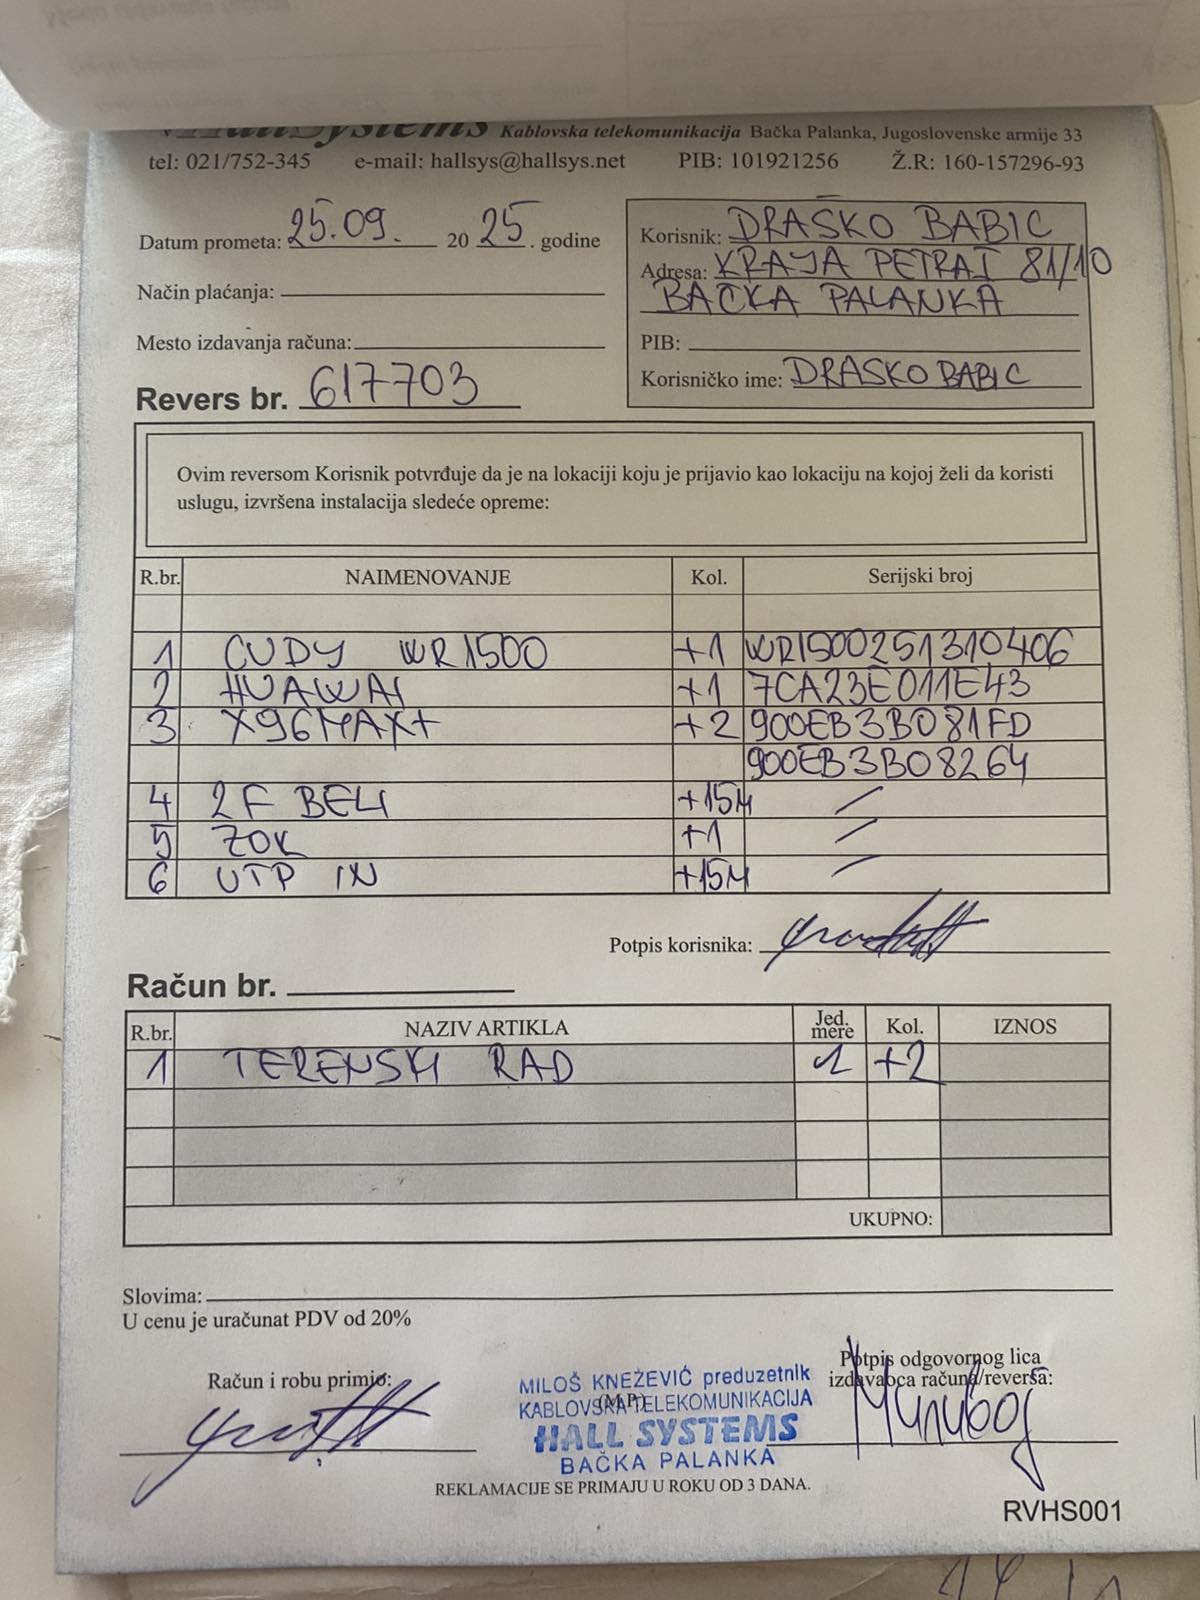 HallSystems Kablovska telekomunikacija Bačka Palanka, Jugoslovenske armije 33
tel: 021/752-345 e-mail: hallsys@hallsys.net PIB: 101921256 Ž.R: 160-157296-93
Datum prometa: 25.09. 20 25. godine
Način plaćanja:
Mesto izdavanja računa:
Revers br. 617703
Korisnik: DRAŠKO BABIC
Adresa: KRAJA PETRA I 81/10
BAČKA PALANKA
PIB:
Korisničko ime: DRASKO BABIC
Ovim reversom Korisnik potvrđuje da je na lokaciji koju je prijavio kao lokaciju na kojoj želi da koristi
uslugu, izvršena instalacija sledeće opreme:
R.br. NAIMENOVANJE Kol. Serijski broj
1 CUDY WR1500 +1 WR1500251310406
2 HUAWAI +1 7CA23E011E43
3 X96MAX+ +2 900EB3B081FD
900EB3B08264
4 2F BELI +15M /
5 ZOK +1 /
6 UTP IN +15M /
Potpis korisnika:
Račun br.
R.br. NAZIV ARTIKLA Jed. mere Kol. IZNOS
1 TERENSKI RAD 1 +2
UKUPNO:
Slovima:
U cenu je uračunat PDV od 20%
Račun i robu primio:
MILOŠ KNEŽEVIĆ preduzetnik
(M.P.)
KABLOVSKA TELEKOMUNIKACIJA
HALL SYSTEMS
BAČKA PALANKA
Potpis odgovornog lica
izdavaoca računa/reversa:
REKLAMACIJE SE PRIMAJU U ROKU OD 3 DANA.
RVHS001